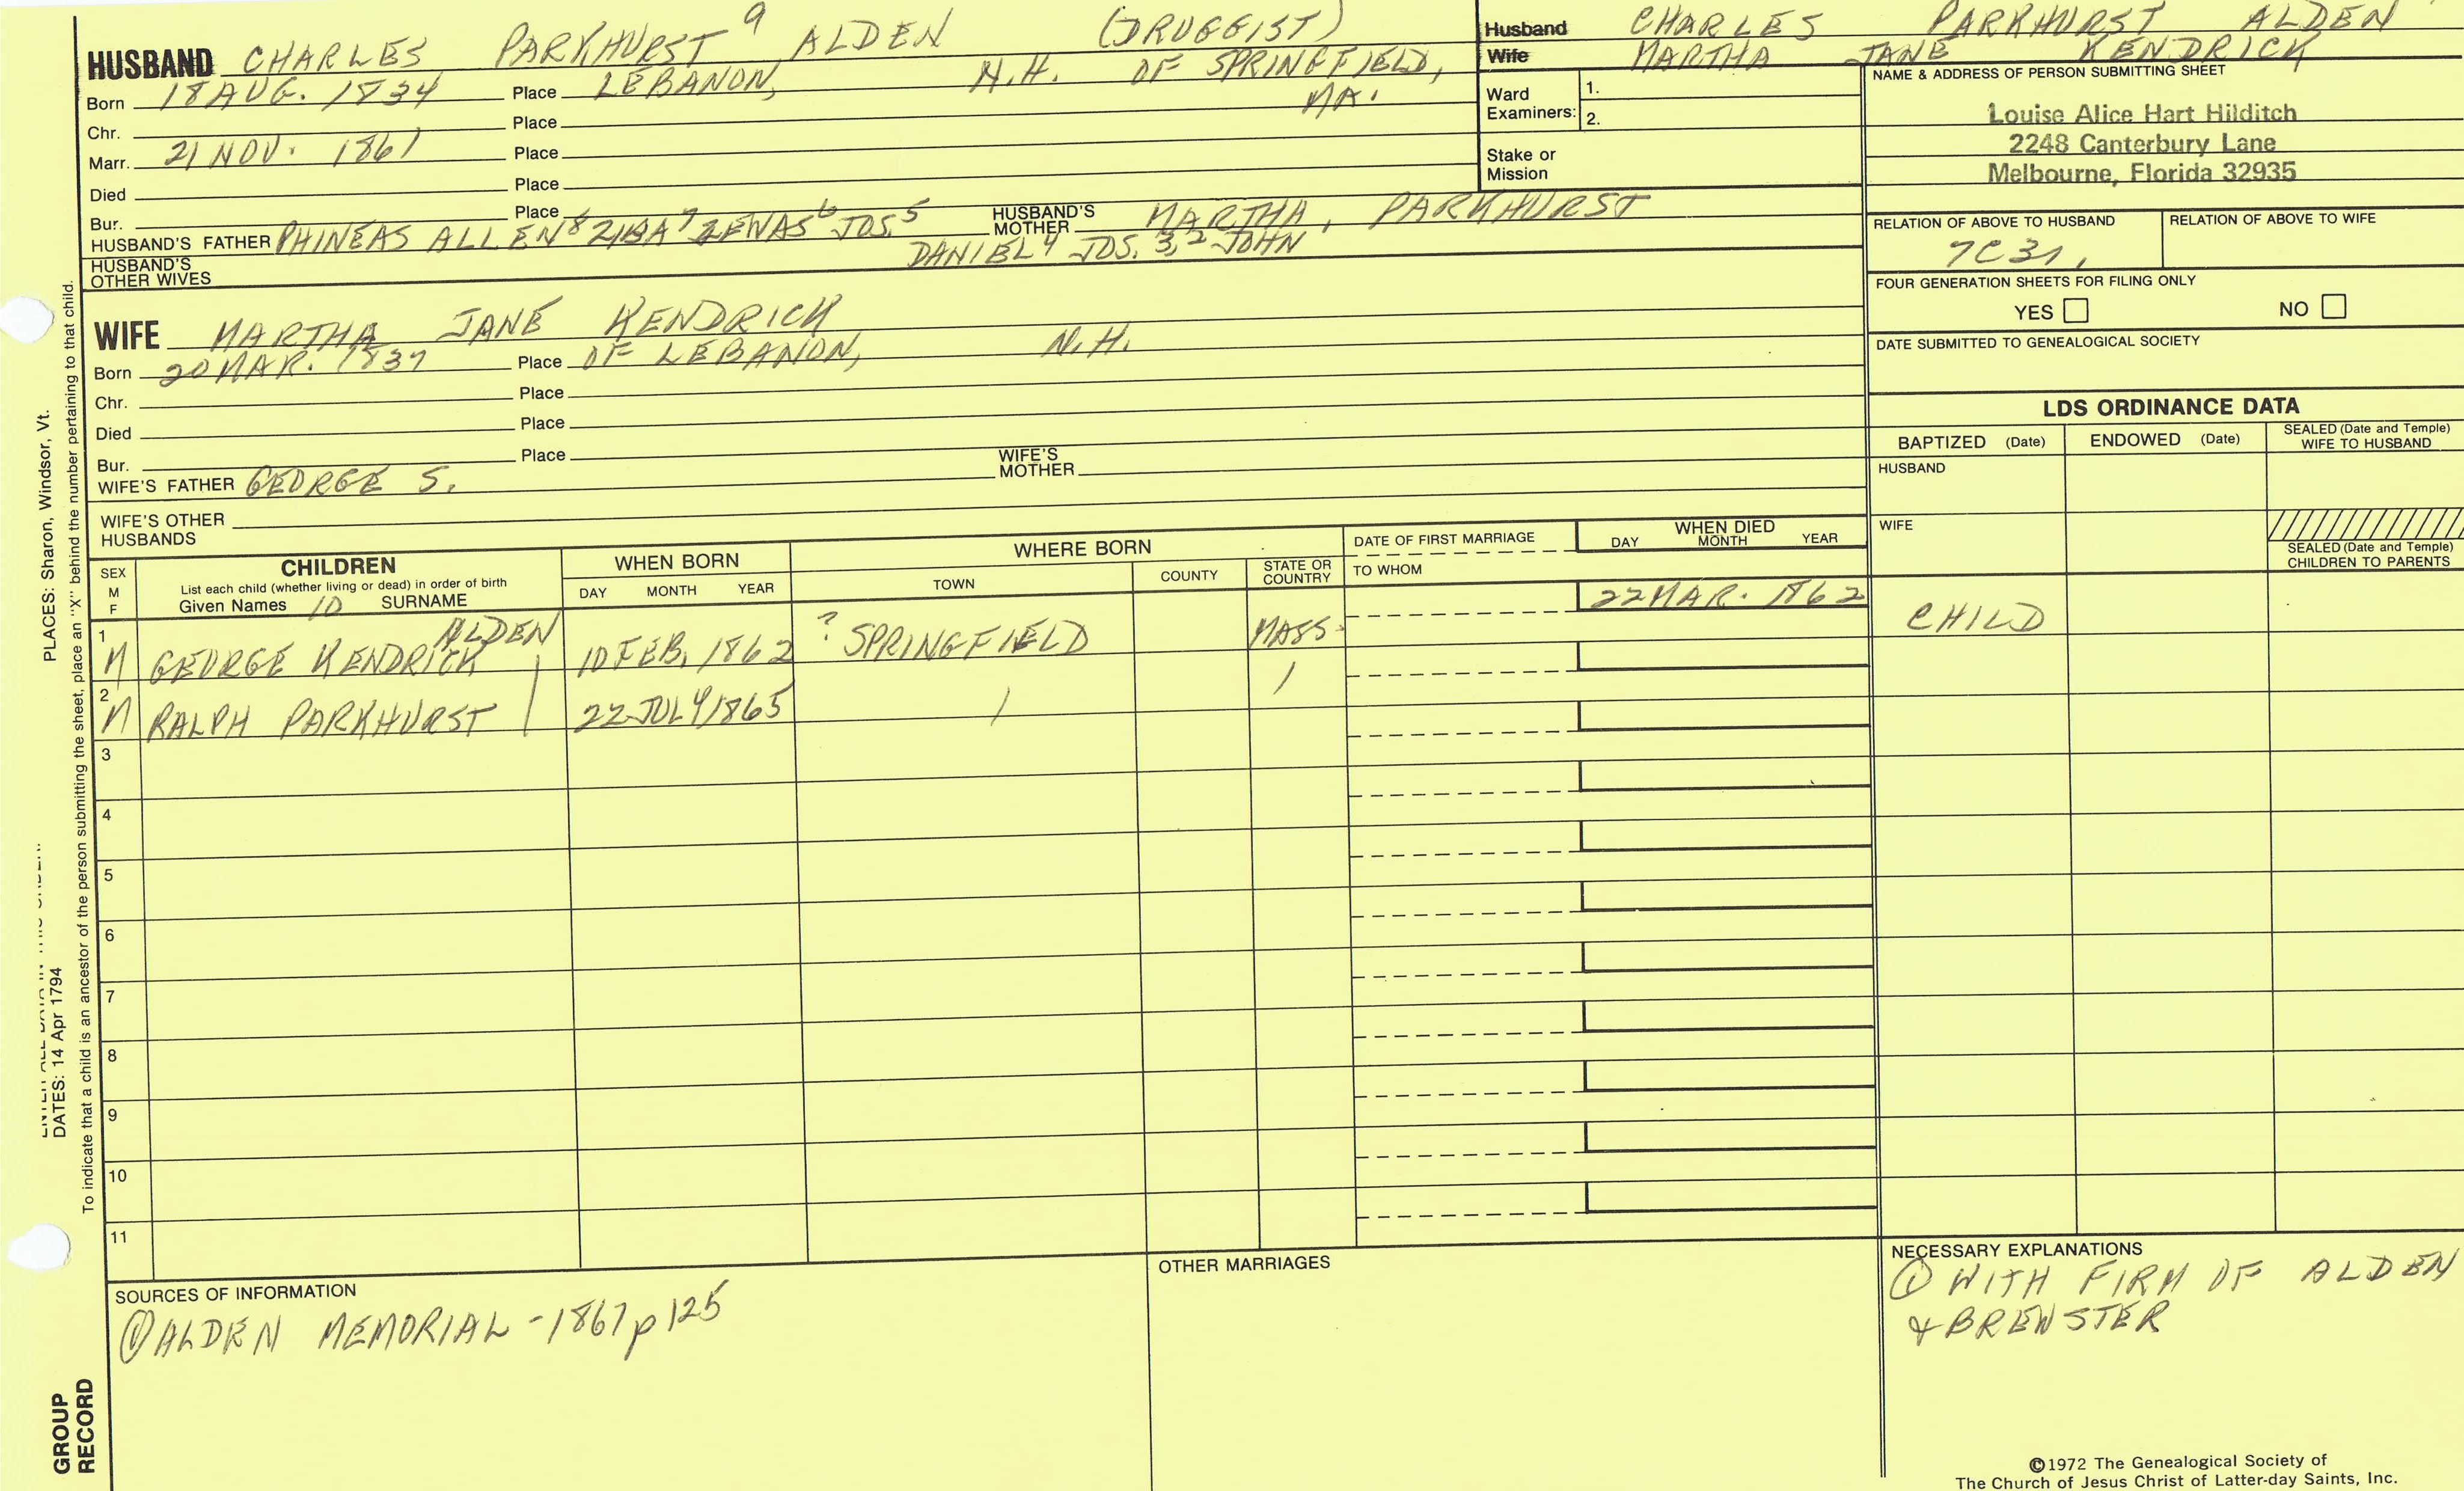 HUSBAND CHARLES PARKHURST 9 ALDEN (DRUGGIST)
Born 18 AUG. 1834 Place LEBANON, N.H. OF SPRINGFIELD, MA.
Chr. Place
Marr. 21 NOV. 1861 Place
Died Place
Bur. Place
HUSBAND'S FATHER PHINEAS ALLEN 8 ZIBA 7 ZENAS 6 JOS. 5 HUSBAND'S MOTHER MARTHA, PARKHURST
DANIEL 4 JOS. 3, 2 JOHN
HUSBAND'S OTHER WIVES
WIFE MARTHA JANE KENDRICK
Born 20 MAR. 1837 Place OF LEBANON, N.H.
Chr. Place
Died Place
Bur. Place
WIFE'S FATHER GEORGE S. WIFE'S MOTHER
WIFE'S OTHER HUSBANDS
Husband CHARLES PARKHURST ALDEN
Wife MARTHA JANE KENDRICK
Ward Examiners: 1.
2.
Stake or Mission
NAME & ADDRESS OF PERSON SUBMITTING SHEET
Louise Alice Hart Hilditch
2248 Canterbury Lane
Melbourne, Florida 32935
RELATION OF ABOVE TO HUSBAND RELATION OF ABOVE TO WIFE
7C3
FOUR GENERATION SHEETS FOR FILING ONLY
YES NO
DATE SUBMITTED TO GENEALOGICAL SOCIETY
LDS ORDINANCE DATA
BAPTIZED (Date) ENDOWED (Date) SEALED (Date and Temple) WIFE TO HUSBAND
HUSBAND
WIFE
SEALED (Date and Temple) CHILDREN TO PARENTS
SEX M F
CHILDREN
List each child (whether living or dead) in order of birth
Given Names 10 SURNAME
WHEN BORN
DAY MONTH YEAR
WHERE BORN
TOWN COUNTY STATE OR COUNTRY
DATE OF FIRST MARRIAGE
TO WHOM
WHEN DIED
DAY MONTH YEAR
1 M GEORGE KENDRICK ALDEN 10 FEB. 1862 ? SPRINGFIELD MASS. 22 MAR. 1862 CHILD
2 M RALPH PARKHURST | 22 JULY 1865 / /
3
4
5
6
7
8
9
10
11
SOURCES OF INFORMATION
① ALDEN MEMORIAL - 1867 p 125
OTHER MARRIAGES
NECESSARY EXPLANATIONS
① WITH FIRM OF ALDEN
& BREWSTER
©1972 The Genealogical Society of
The Church of Jesus Christ of Latter-day Saints, Inc.
PLACES: Sharon, Windsor, Vt.
DATES: 14 Apr 1794
To indicate that a child is an ancestor of the person submitting the sheet, place an "X" behind the number pertaining to that child.
GROUP
RECORD